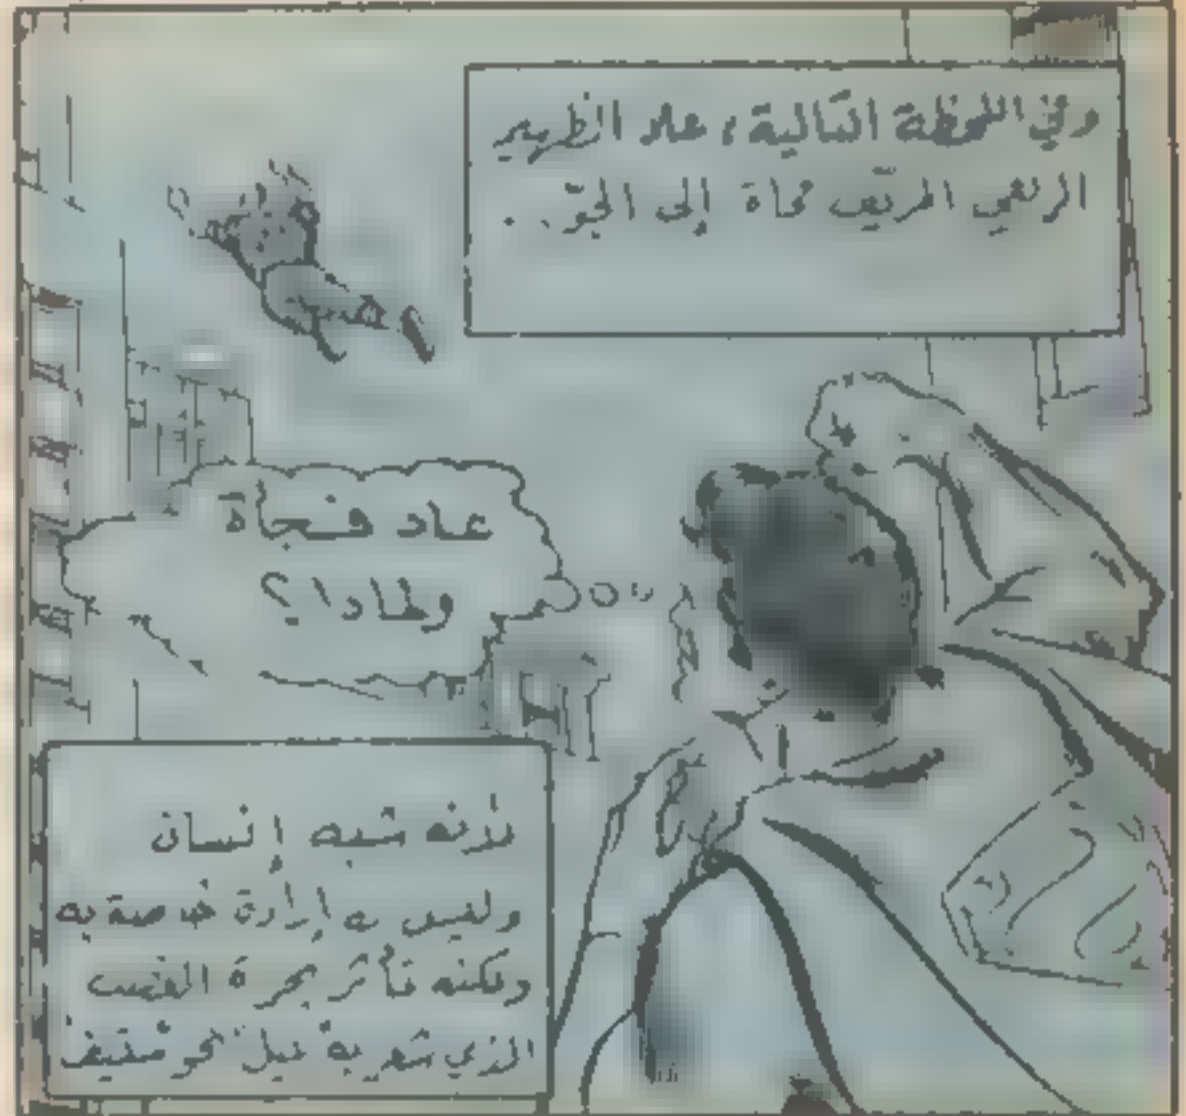 وفي اللحظة التالية، عاد الظهير
إلى الجوّ..
عاد فجأة
ولماذا؟
لأنه شبه إنسان
وليس به إرادة خاصة به
ولكنه تأثر بحرة الغضب
الذي شعر به نحو ستيف